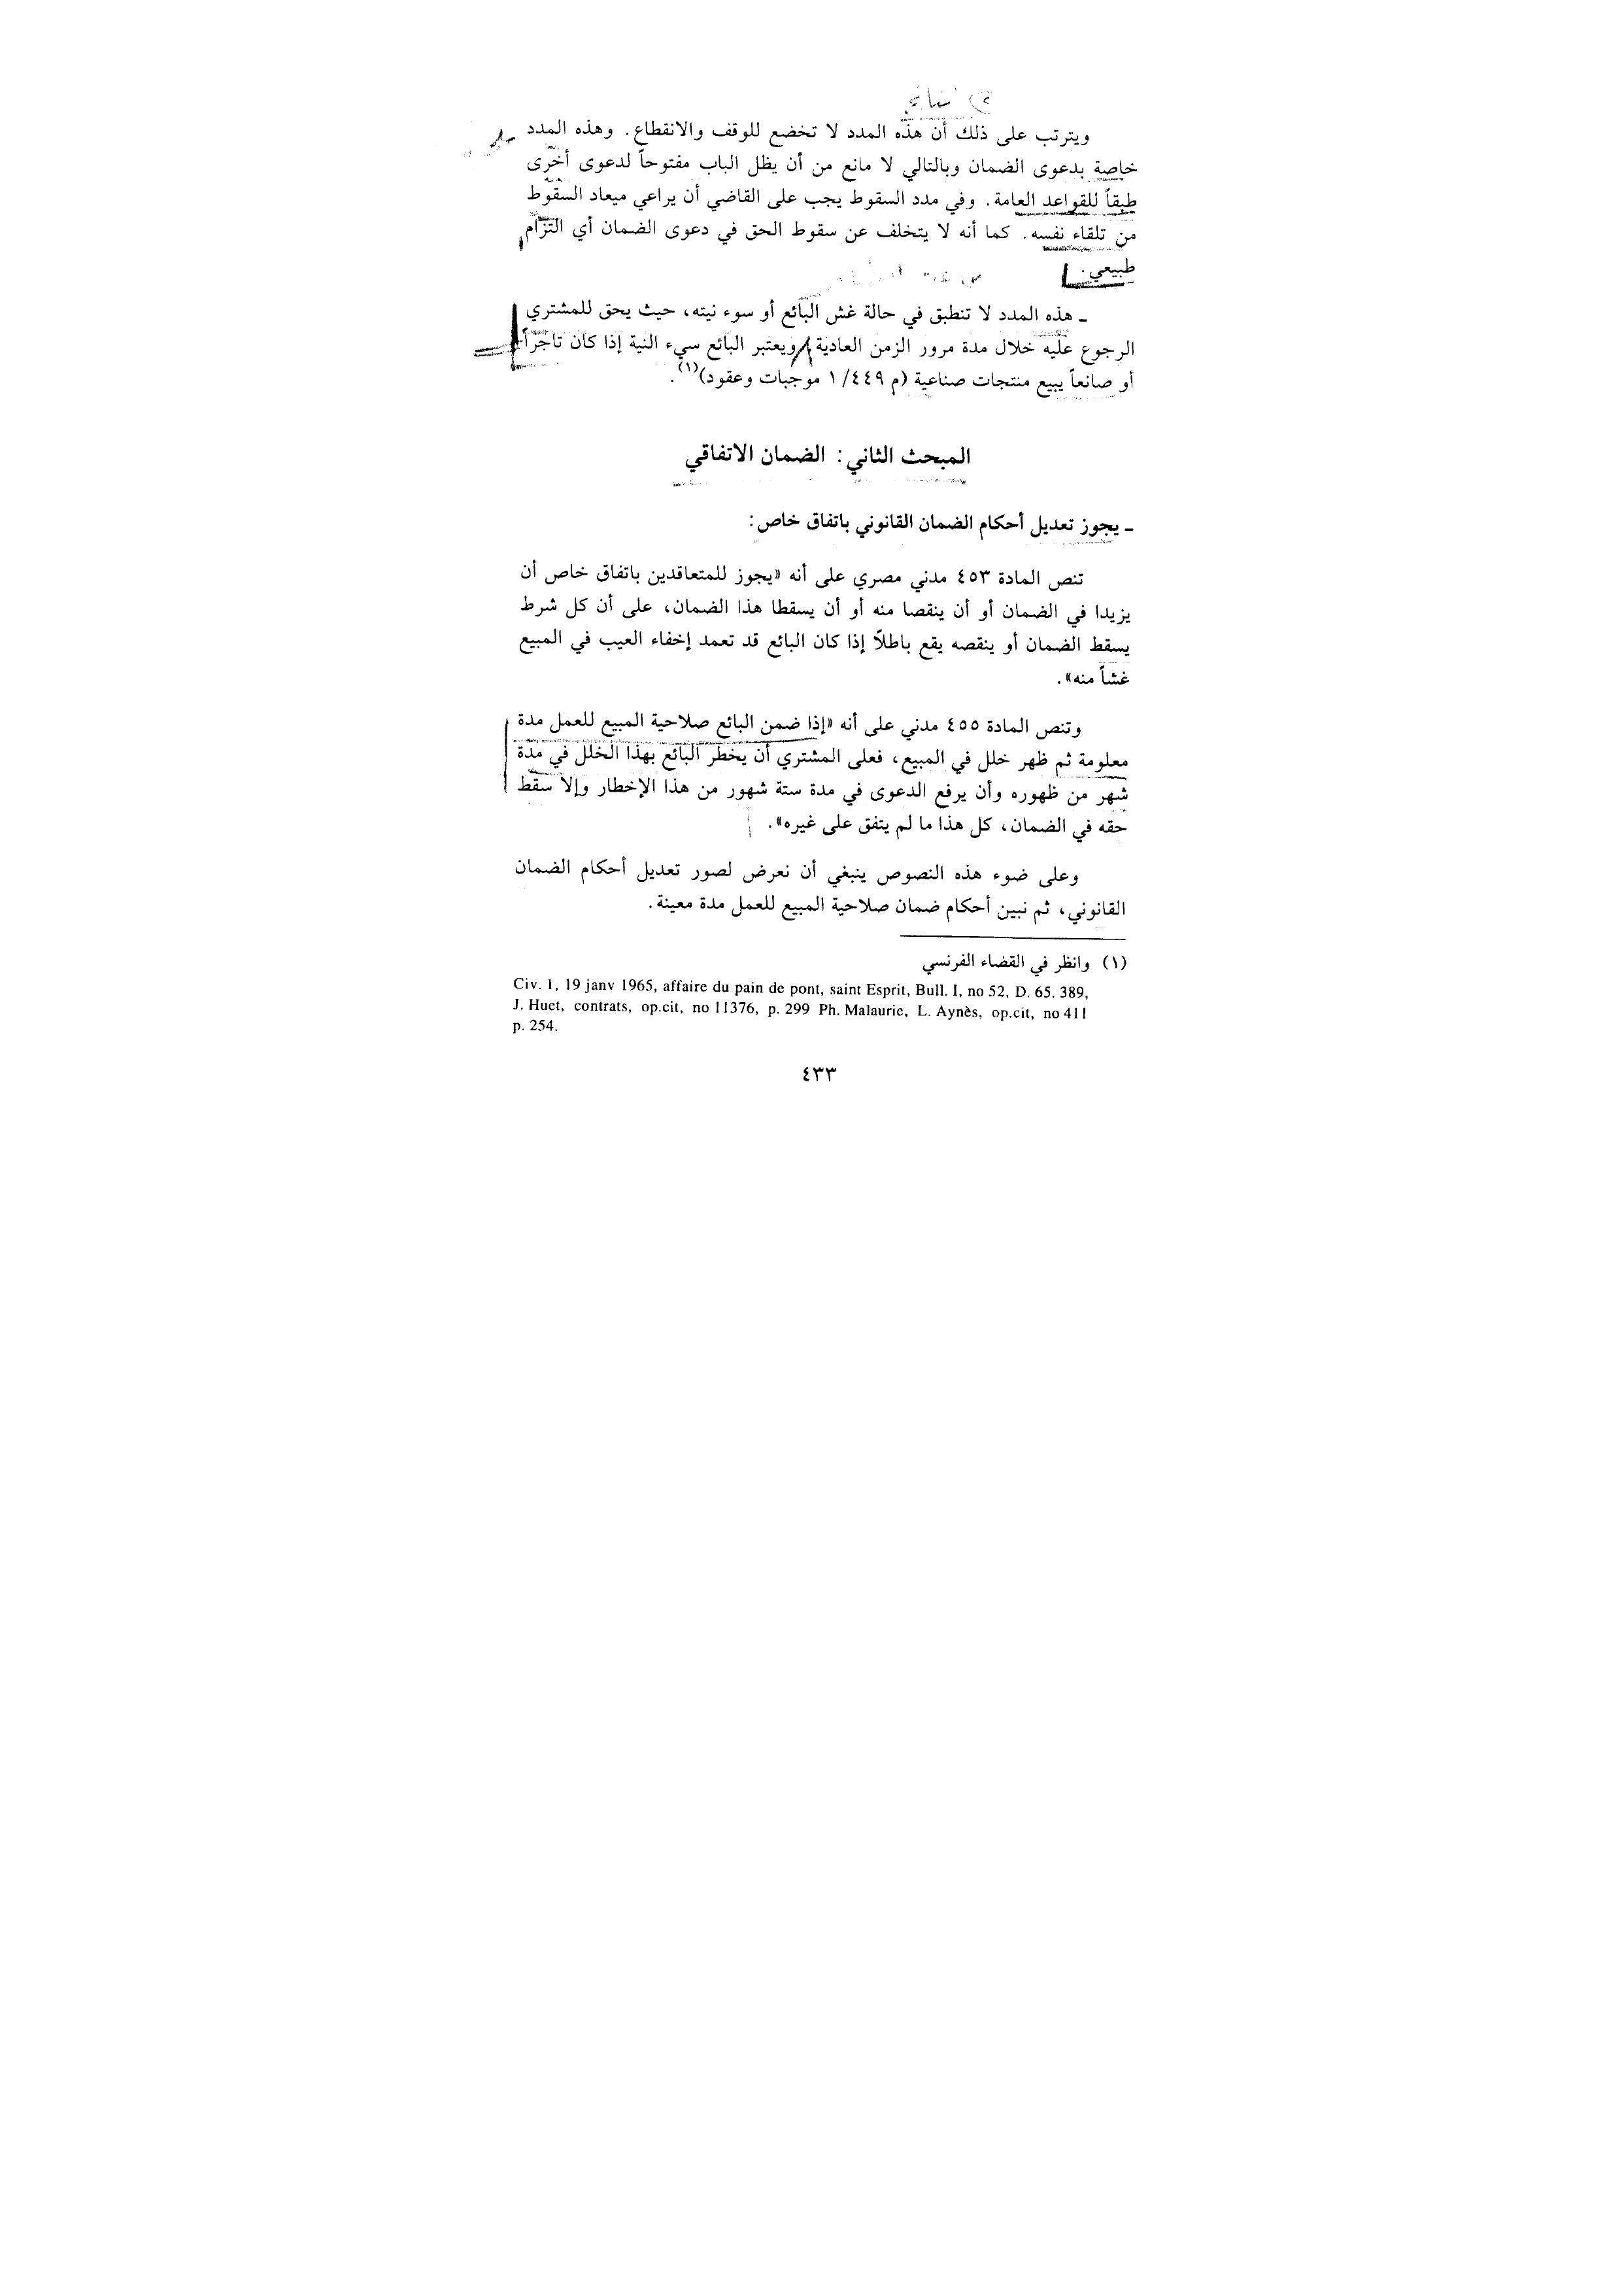 ويترتب على ذلك أن هذه المدد لا تخضع للوقف والانقطاع. وهذه المدد
خاصة بدعوى الضمان وبالتالي لا مانع من أن يظل الباب مفتوحاً لدعوى أخرى
طبقاً للقواعد العامة. وفي مدد السقوط يجب على القاضي أن يراعي ميعاد السقوط
من تلقاء نفسه. كما أنه لا يتخلف عن سقوط الحق في دعوى الضمان أي التزام
طبيعي.
ـ هذه المدد لا تنطبق في حالة غش البائع أو سوء نيته، حيث يحق للمشتري
الرجوع عليه خلال مدة مرور الزمن العادية ويعتبر البائع سيء النية إذا كان تاجراً
أو صانعاً يبيع منتجات صناعية (م ٤٤٩/ ١ موجبات وعقود)(١).
المبحث الثاني: الضمان الاتفاقي
ـ يجوز تعديل أحكام الضمان القانوني باتفاق خاص:
تنص المادة ٤٥٣ مدني مصري على أنه «يجوز للمتعاقدين باتفاق خاص أن
يزيدا في الضمان أو أن ينقصا منه أو أن يسقطا هذا الضمان، على أن كل شرط
يسقط الضمان أو ينقصه يقع باطلاً إذا كان البائع قد تعمد إخفاء العيب في المبيع
غشاً منه».
وتنص المادة ٤٥٥ مدني على أنه «إذا ضمن البائع صلاحية المبيع للعمل مدة
معلومة ثم ظهر خلل في المبيع، فعلى المشتري أن يخطر البائع بهذا الخلل في مدة
شهر من ظهوره وأن يرفع الدعوى في مدة ستة شهور من هذا الإخطار وإلا سقط
حقه في الضمان، كل هذا ما لم يتفق على غيره».
وعلى ضوء هذه النصوص ينبغي أن نعرض لصور تعديل أحكام الضمان
القانوني، ثم نبين أحكام ضمان صلاحية المبيع للعمل مدة معينة.
(١) وانظر في القضاء الفرنسي
Civ. 1, 19 janv 1965, affaire du pain de pont, saint Esprit, Bull. I, no 52, D. 65. 389,
J. Huet, contrats, op.cit, no 11376, p. 299 Ph. Malaurie, L. Aynès, op.cit, no 411
p. 254.
٤٣٣